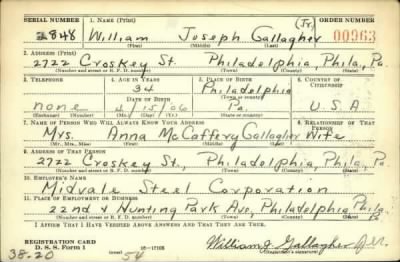 SERIAL NUMBER 1. NAME (Print) ORDER NUMBER
2848 William Joseph Gallagher (Jr.) 00963
(First) (Middle) (Last)
2. ADDRESS (Print)
2722 Croskey St. Philadelphia, Phila, Pa.
(Number and street or R. F. D. number) (Town) (County) (State)
3. TELEPHONE 4. AGE IN YEARS 5. PLACE OF BIRTH 6. COUNTRY OF CITIZENSHIP
34 Philadelphia
(Town or county)
DATE OF BIRTH
none 4 15 06 Pa. U S A
(Exchange) (Number) (Mo.) (Day) (Yr.) (State or country)
7. NAME OF PERSON WHO WILL ALWAYS KNOW YOUR ADDRESS 8. RELATIONSHIP OF THAT PERSON
Mrs. Anna McCaffery Gallagher Wife
(Mr., Mrs., Miss) (First) (Middle) (Last)
9. ADDRESS OF THAT PERSON
2722 Croskey St., Philadelphia, Phila, Pa
(Number and street or R. F. D. number) (Town) (County) (State)
10. EMPLOYER'S NAME
Midvale Steel Corporation
11. PLACE OF EMPLOYMENT OR BUSINESS
22nd & Hunting Park Ave, Philadelphia Phila Pa.
(Number and street or R. F. D. number) (Town) (County) (State)
I AFFIRM THAT I HAVE VERIFIED ABOVE ANSWERS AND THAT THEY ARE TRUE.
REGISTRATION CARD
D. S. S. Form 1 16—17105 William J Gallagher Jr.
38-20 54